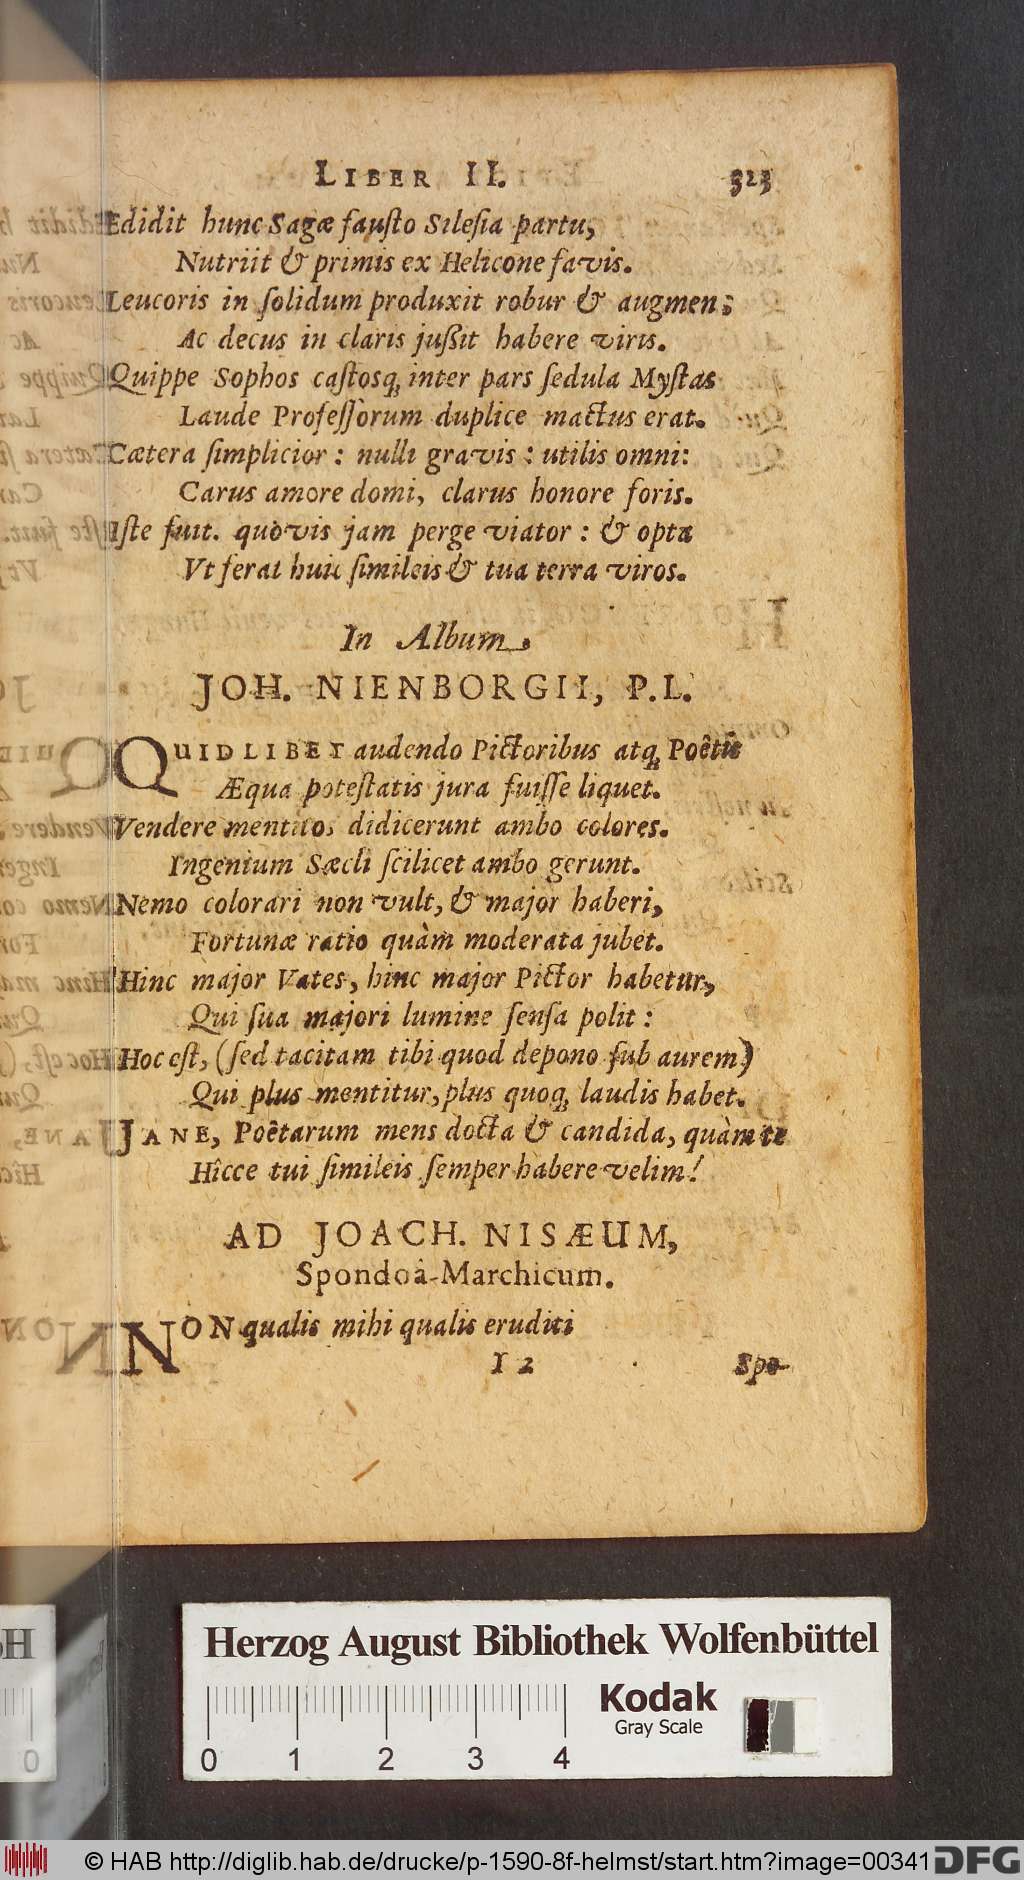 LIBER II. 323
Edidit hunc Sagæ fausto Silesia partu,
Nutriit & primis ex Helicone favis.
Leucoris in solidum produxit robur & augmen;
Ac decus in claris jußit habere viris.
Quippe Sophos castosq́; inter pars sedula Mystas
Laude Professòrum duplice mactus erat.
Cætera simplicior: nulli gravis: utilis omni:
Carus amore domi, clarus honore foris.
Iste fuit. quòvis jam perge viator: & opta
Vt ferat huic simileis & tua terra viros.
In Album
JOH. NIENBORGII, P.L.
QUIDLIBET audendo Pictoribus atq́; Poêtis
Æqua potestatis jura fuisse liquet.
Vendere mentitos didicerunt ambo colores.
Ingenium Sæcli scilicet ambo gerunt.
Nemo colorari non vult, & major haberi,
Fortunæ ratio quàm moderata jubet.
Hinc major Vates, hinc major Pictor habetur,
Qui sua majori lumine sensa polit:
Hoc est, (sed tacitam tibi quod depono sub aurem)
Qui plus mentitur, plus quoq́; laudis habet.
JANE, Poêtarum mens docta & candida, quàm te
Hîcce tui simileis semper habere velim!
AD JOACH. NISÆUM,
Spondoâ-Marchicum.
NON qualis mihi qualis eruditi
I 2 Spo-
Herzog August Bibliothek Wolfenbüttel
Kodak
Gray Scale
0 1 2 3 4
0
© HAB http://diglib.hab.de/drucke/p-1590-8f-helmst/start.htm?image=00341 DFG